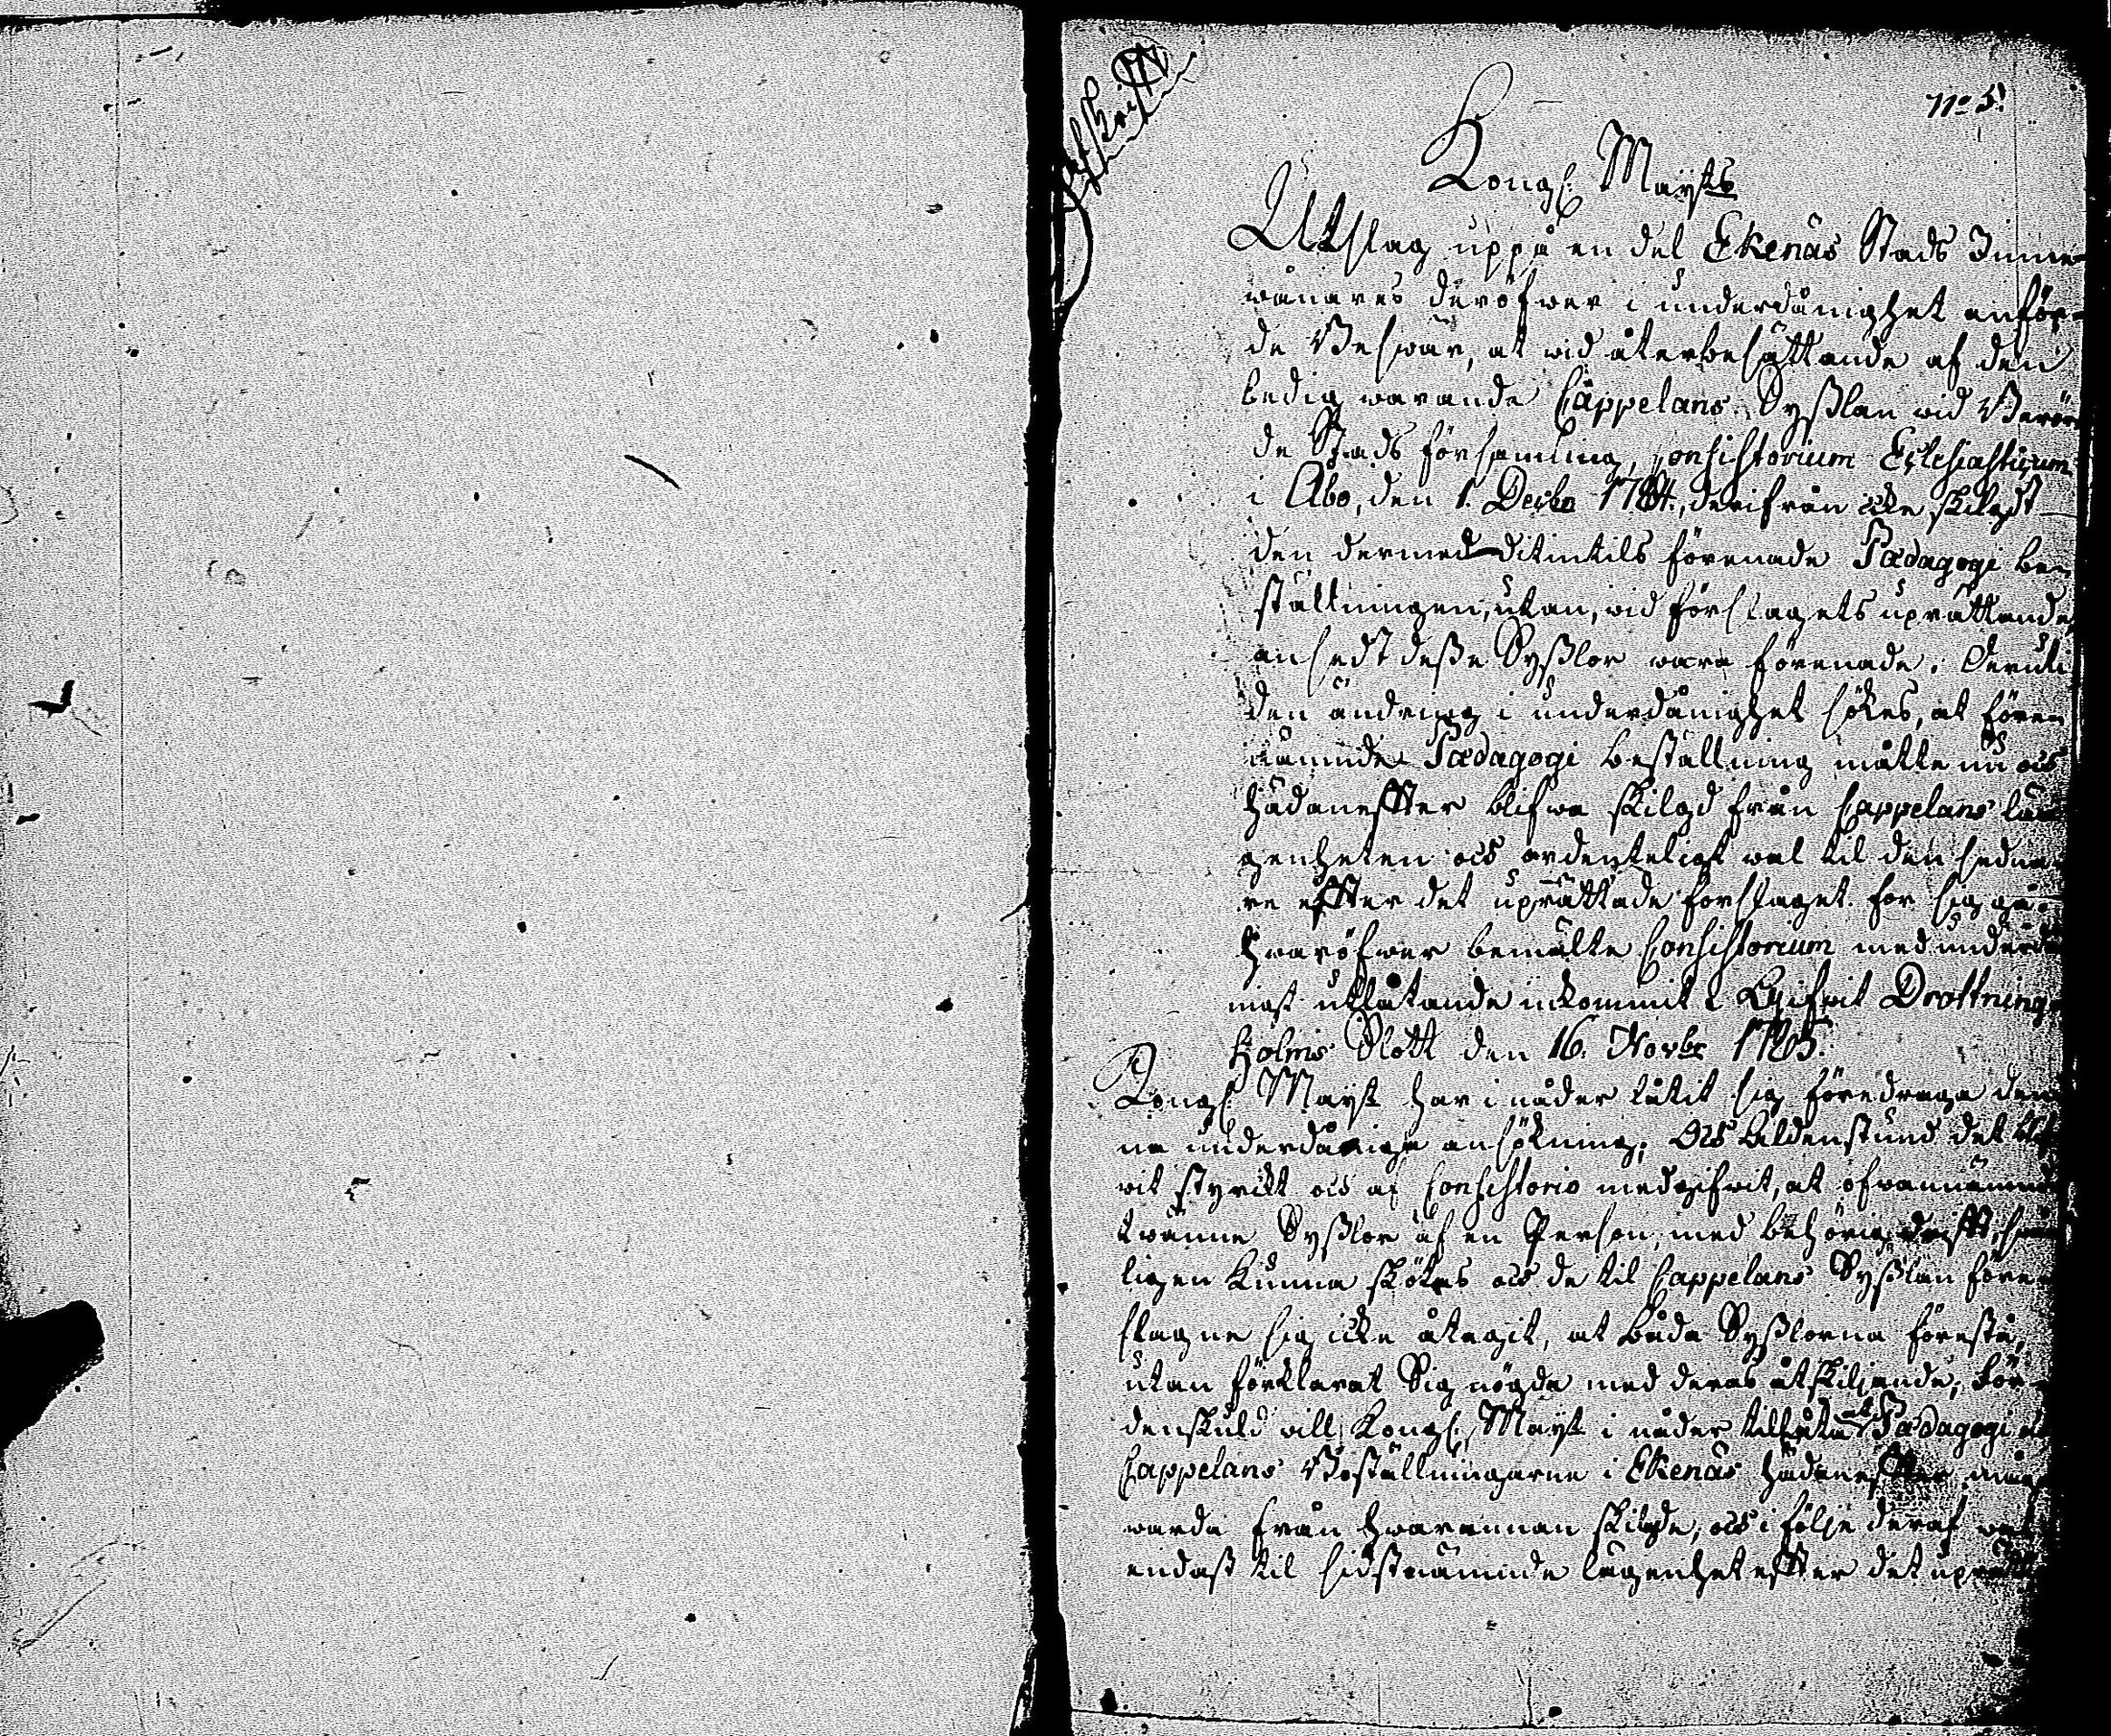 Afskrift
No 5.
Kongl. Mayts
Utslag uppå en del Ekenäs Stads Inne-
wånares deröfwer i underdånighet anför-
de Beswär, at wid återbesättande af den
ledig warande Cappelans Sysslan wid Berör-
de Stads församling, Consistorium Eclesiasticum
i Åbo, den 1. Decbr 1784, derifrån icke skilgdt
den dermed ditintils förenade Pædagogi be-
ställningen, utan, wid förslagets uprättande,
ansedt desse Sysslor wara förenade; Deruti
den ändring i underdånighet sökes, at före-
nämnde Pædagogi beställning måtte nu och
hädaneffter blifwa skilgd från Cappelans lä-
genheten och ordenteligt wal til den sedna-
re effter det uprättade förslaget för sig gå;
hwaröfwer bemälte Consistorium med underdå-
nigst utlåtande inkommit; Gifwit Drottning-
holms Slott den 16. Novbr 1785.
Kongl. Mayt har i nåder låtit sig föredraga den-
na underdåniga ansökning; Och Aldenstund det blif-
wit styrkt och af Consistorio medgifwit, at ofwannämnde
twänne Sysslor af en Person, med behörig drifft,
ligen kunna skötas och de til Cappelans Sysslan före-
slagne sig icke åtagit, at båda Sysslorna förestå,
utan förklarat Sig nögde med deras åtskiljande; För-
denskuld will Kongl. Mayt i nåder tillåta at Pædagogi och
Cappelans Beställningarne i Ekenäs hädaneffter måge
warda från hwarannan skilgde, och i följe deraf wal
endast til sidstnämnde lägenhet effter det uprätta-